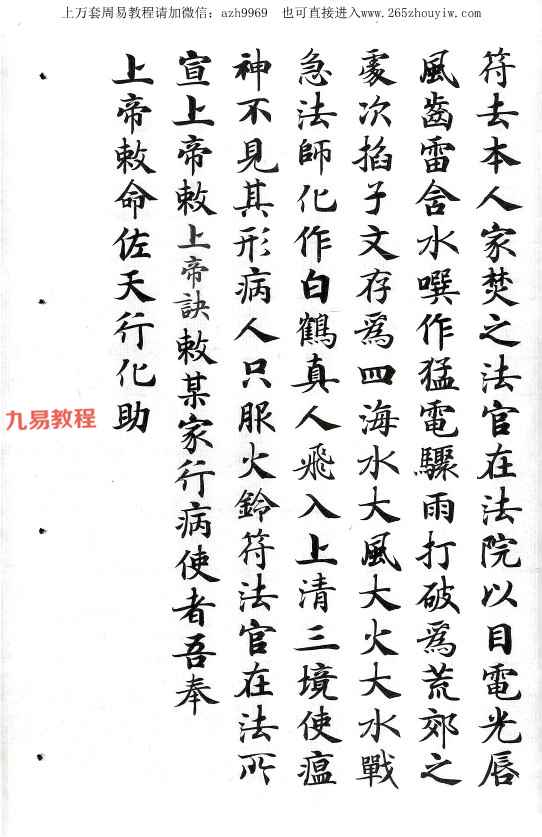 上万套周易教程请加微信：azh9969　也可直接进入www.265zhouyiw.com
符去本人家焚之法官在法院以目電光唇
風齒雷舍水噀作猛電驟雨打破爲荒郊之
處次掐子文存爲四海水大風大火大水戰
急法師化作白鶴真人飛入上清三境使瘟
神不見其形病人只服火鈴符法官在法所
宣上帝敕上帝訣敕某家行病使者吾奉
上帝敕命佐天行化助
九易教程